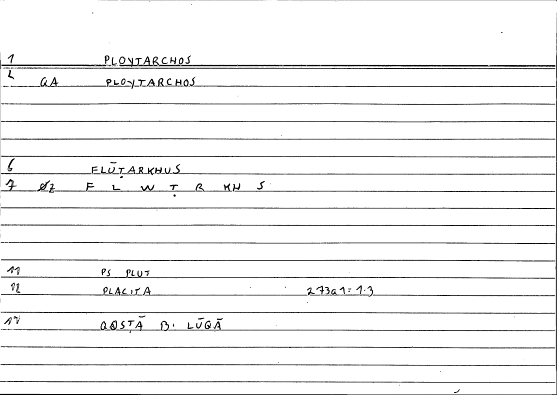 1 PLOYTARCHOS
2 GA PLOYTARCHOS
6 FLŪṬARKHUS
7 ØZ F L W Ṭ R KH S
11 PS PLUT
12 PLACITA 273a1=1.3
17 QOSṬĀ B. LŪQĀ